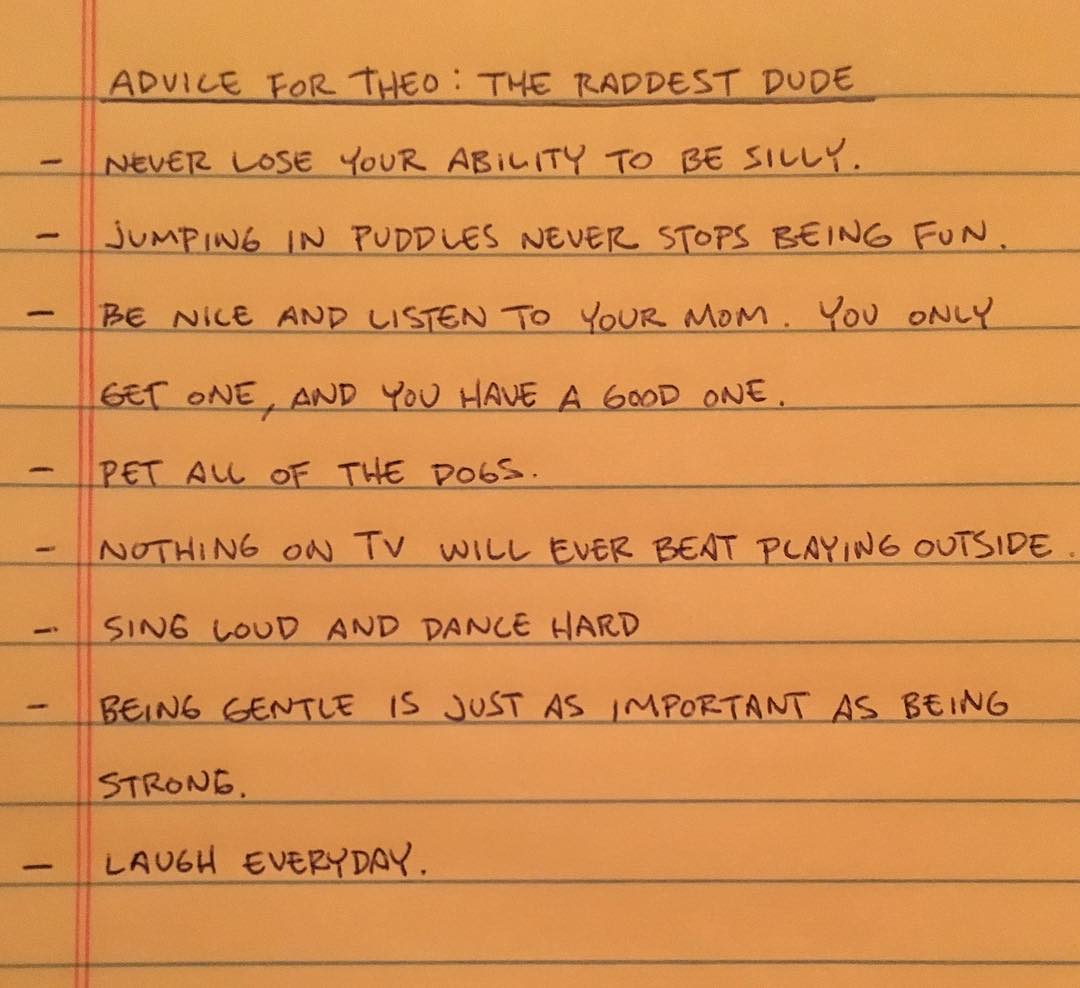 ADVICE FOR THEO: THE RADDEST DUDE
- NEVER LOSE YOUR ABILITY TO BE SILLY.
- JUMPING IN PUDDLES NEVER STOPS BEING FUN.
- BE NICE AND LISTEN TO YOUR MOM. YOU ONLY
GET ONE, AND YOU HAVE A GOOD ONE.
- PET ALL OF THE DOGS.
- NOTHING ON TV WILL EVER BEAT PLAYING OUTSIDE.
- SING LOUD AND DANCE HARD
- BEING GENTLE IS JUST AS IMPORTANT AS BEING
STRONG.
- LAUGH EVERYDAY.